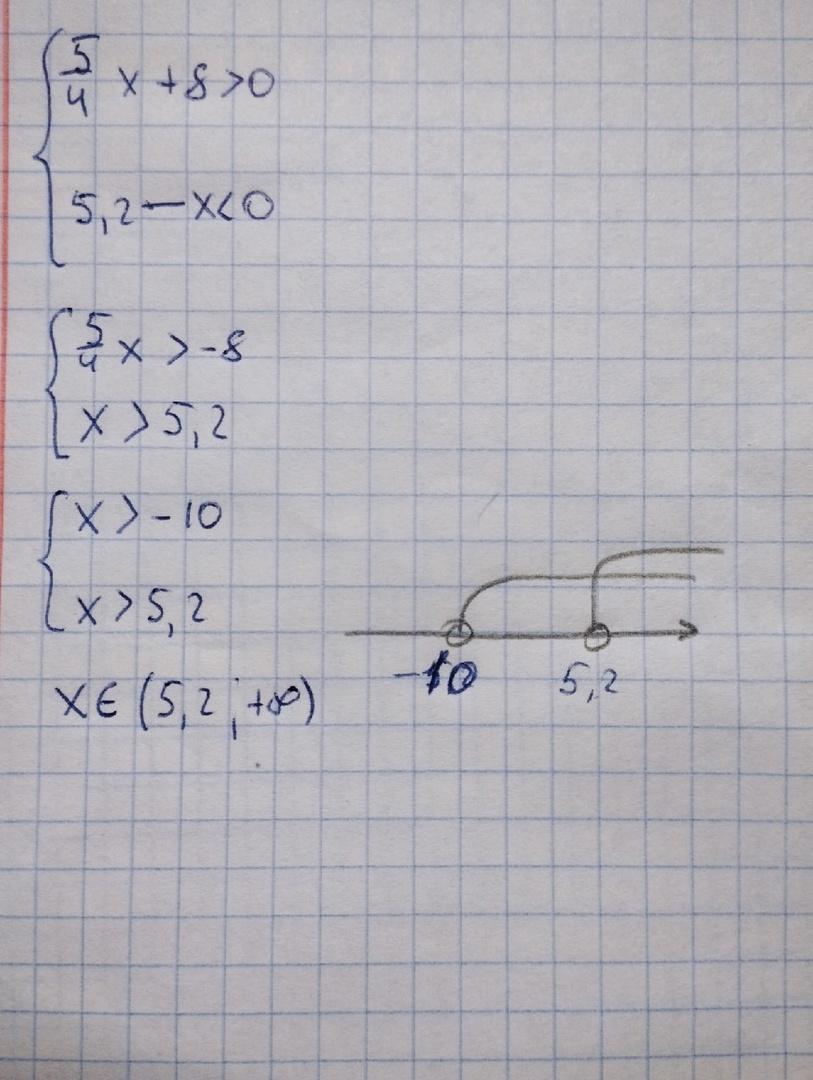 5/4 x + 8 > 0
5,2 — x < 0
5/4 x > -8
x > 5,2
x > -10
x > 5,2
-10 5,2
x ∈ (5,2 ; +∞)